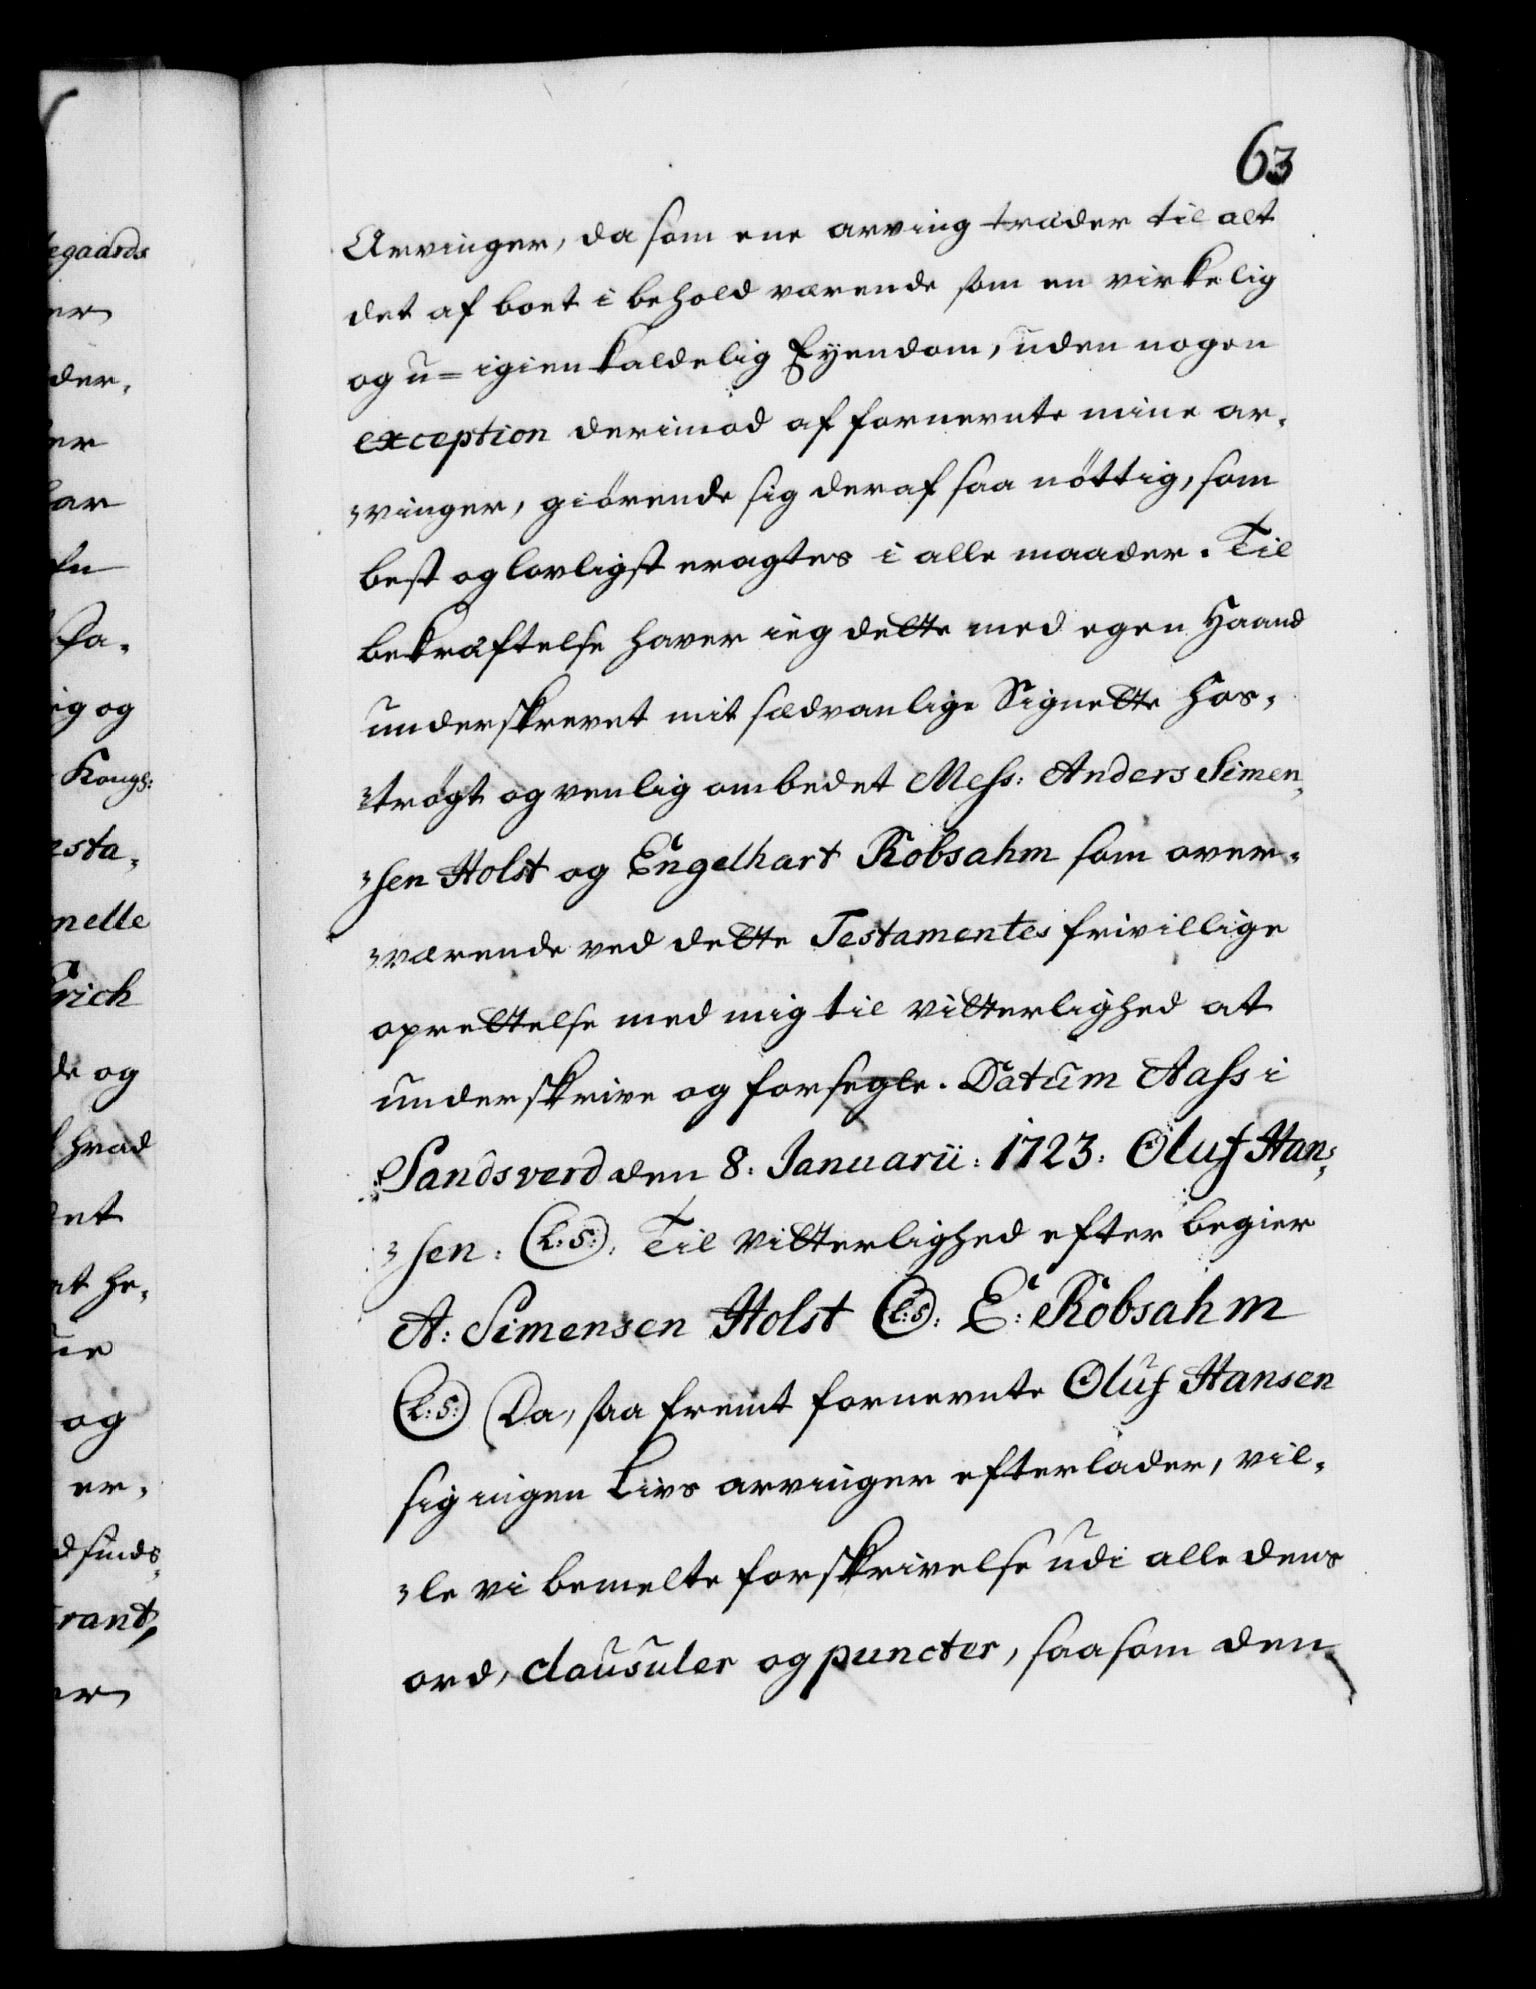 63
Arvinger, da som ene arving træder til alt
det af boet i behold værende som en virkelig
og u=igienkaldelig Eyendom, uden nogen
exception derimod af fornevnte mine ar,
„vinger, giörende sig deraf saa nöttig, som
best og lovligst eragtes i alle maader. Til
bekræftelse haver ieg dette med egen Haand
underskrevet mit sædvanlige Signette hos,
„trögt og venlig ombedet Mess: Anders Simen,
„sen Holst og Engelhart Robsahm som over,
„værende ved dette Testamentes frivillige
oprettelse med mig til vitterlighed at
underskrive og forsegle. Datum Aass i
Sandsverd den 8: Januarii: 1723: Oluf Han,
„sen: (L:S:): Til Vitterlighed efter begier
A: Simensen Holst (L:S): E: Robsahm
(L:S:) Da, saa fremt fornevnte Oluf Hansen
sig ingen Livs arvinger efterlader, vil,
„le vi bemelte forskrivelse udi alle dens
ord, clausuler og puncter, saasom den
egaards
er
der,
er
ar
sa,
ig og
Kongl:
esta,
nelle
Erich
de og
hvad
det
et he,
og
er,
rant,
er